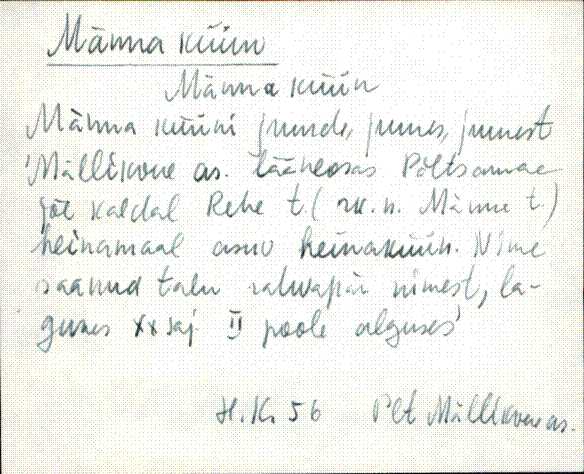 Männa küün
Männa küün
Männa küüni juurde, juures, juurest
'Mällikvere as. lääneosas Põltsamaa
jõe kaldal Rehe t. (rk. n. Männa t.)
heinamaal asuv heinaküün. Nime
saanud talu rahvapär. nimest, la-
gunes XX saj. II poole alguses'
H.K. 56 Plt Mällikvere as.